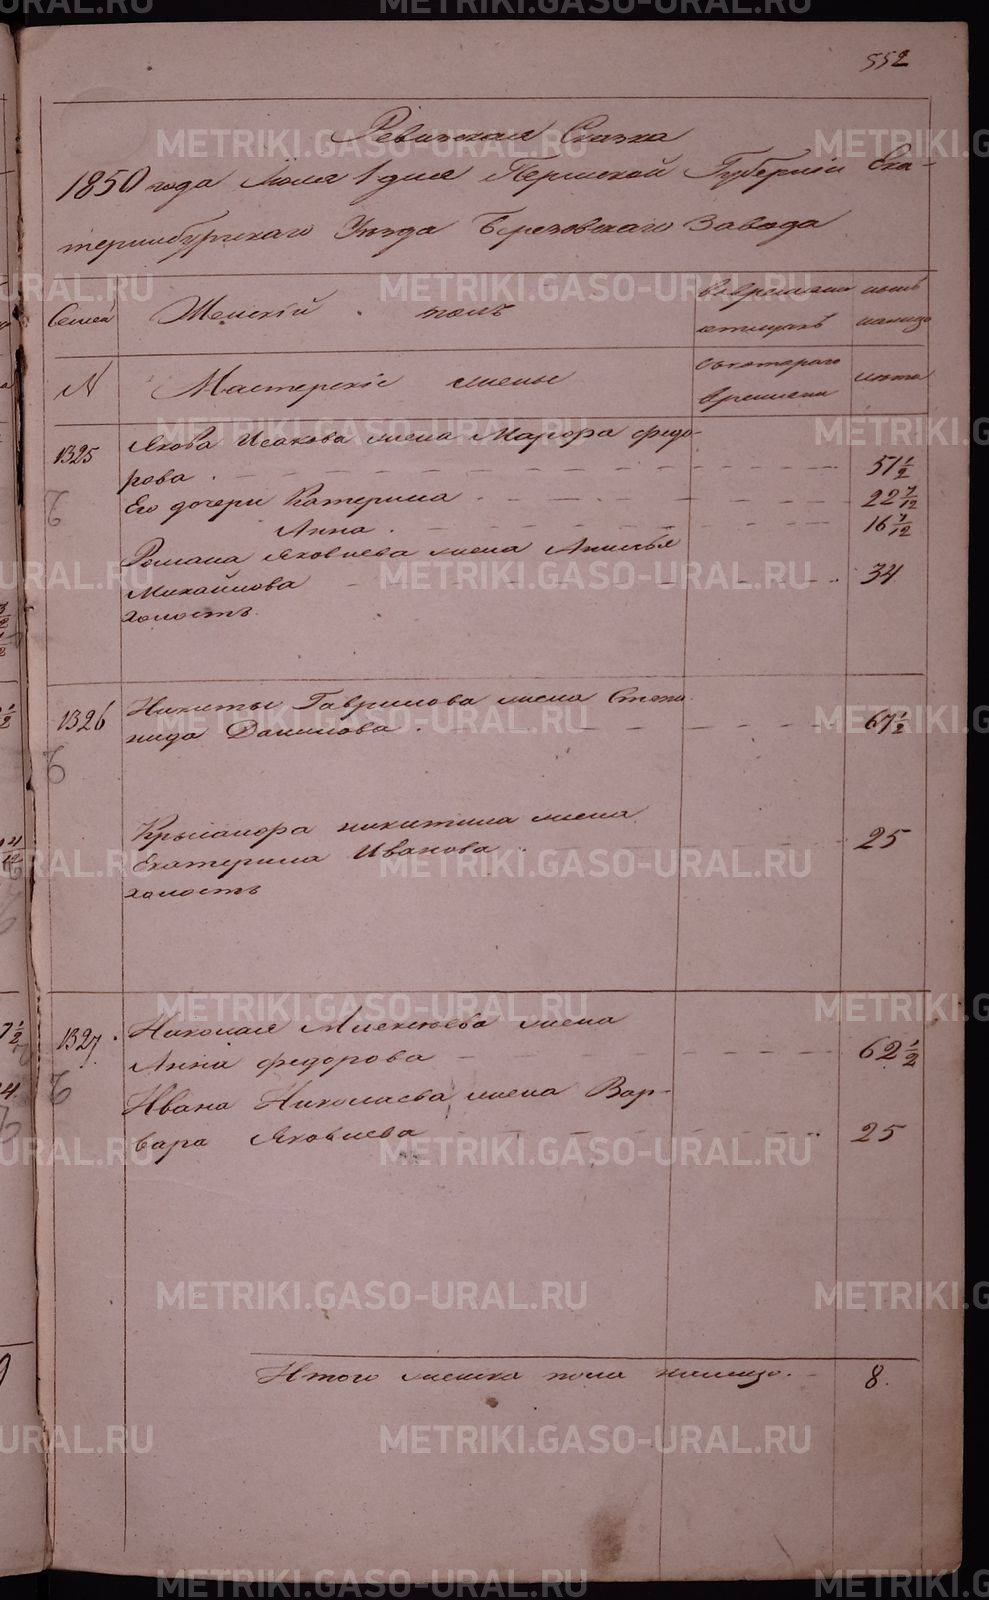 552
Ревизская Сказка
1850 года Июля 1 дня Пермской Губернии Ека-
теринбургскаго Уезда Березовскаго Завода
Семей Женский полъ Вовременной ныне
отлучкъ налицо
N Мастерские жены Скотораго лета
времени
1325 Якова Исакова жена Марфа федо-
рова 51 1/2
Его дочери Катерина 22 7/12
Анна 16 7/12
Романа Яковлева жена
Михайлова 34
холостъ
1326 Никиты Гаврилова жена Степа
нида Данилова 67 1/2
никитина жена
Екатерина Иванова 25
холостъ
1327 Николая Алексеева жена
Анна федорова 62 1/2
Ивана Николаева жена Вар-
вара Яковлева 25
Итого женска пола налицо 8.
METRIKI.GASO-URAL.RU